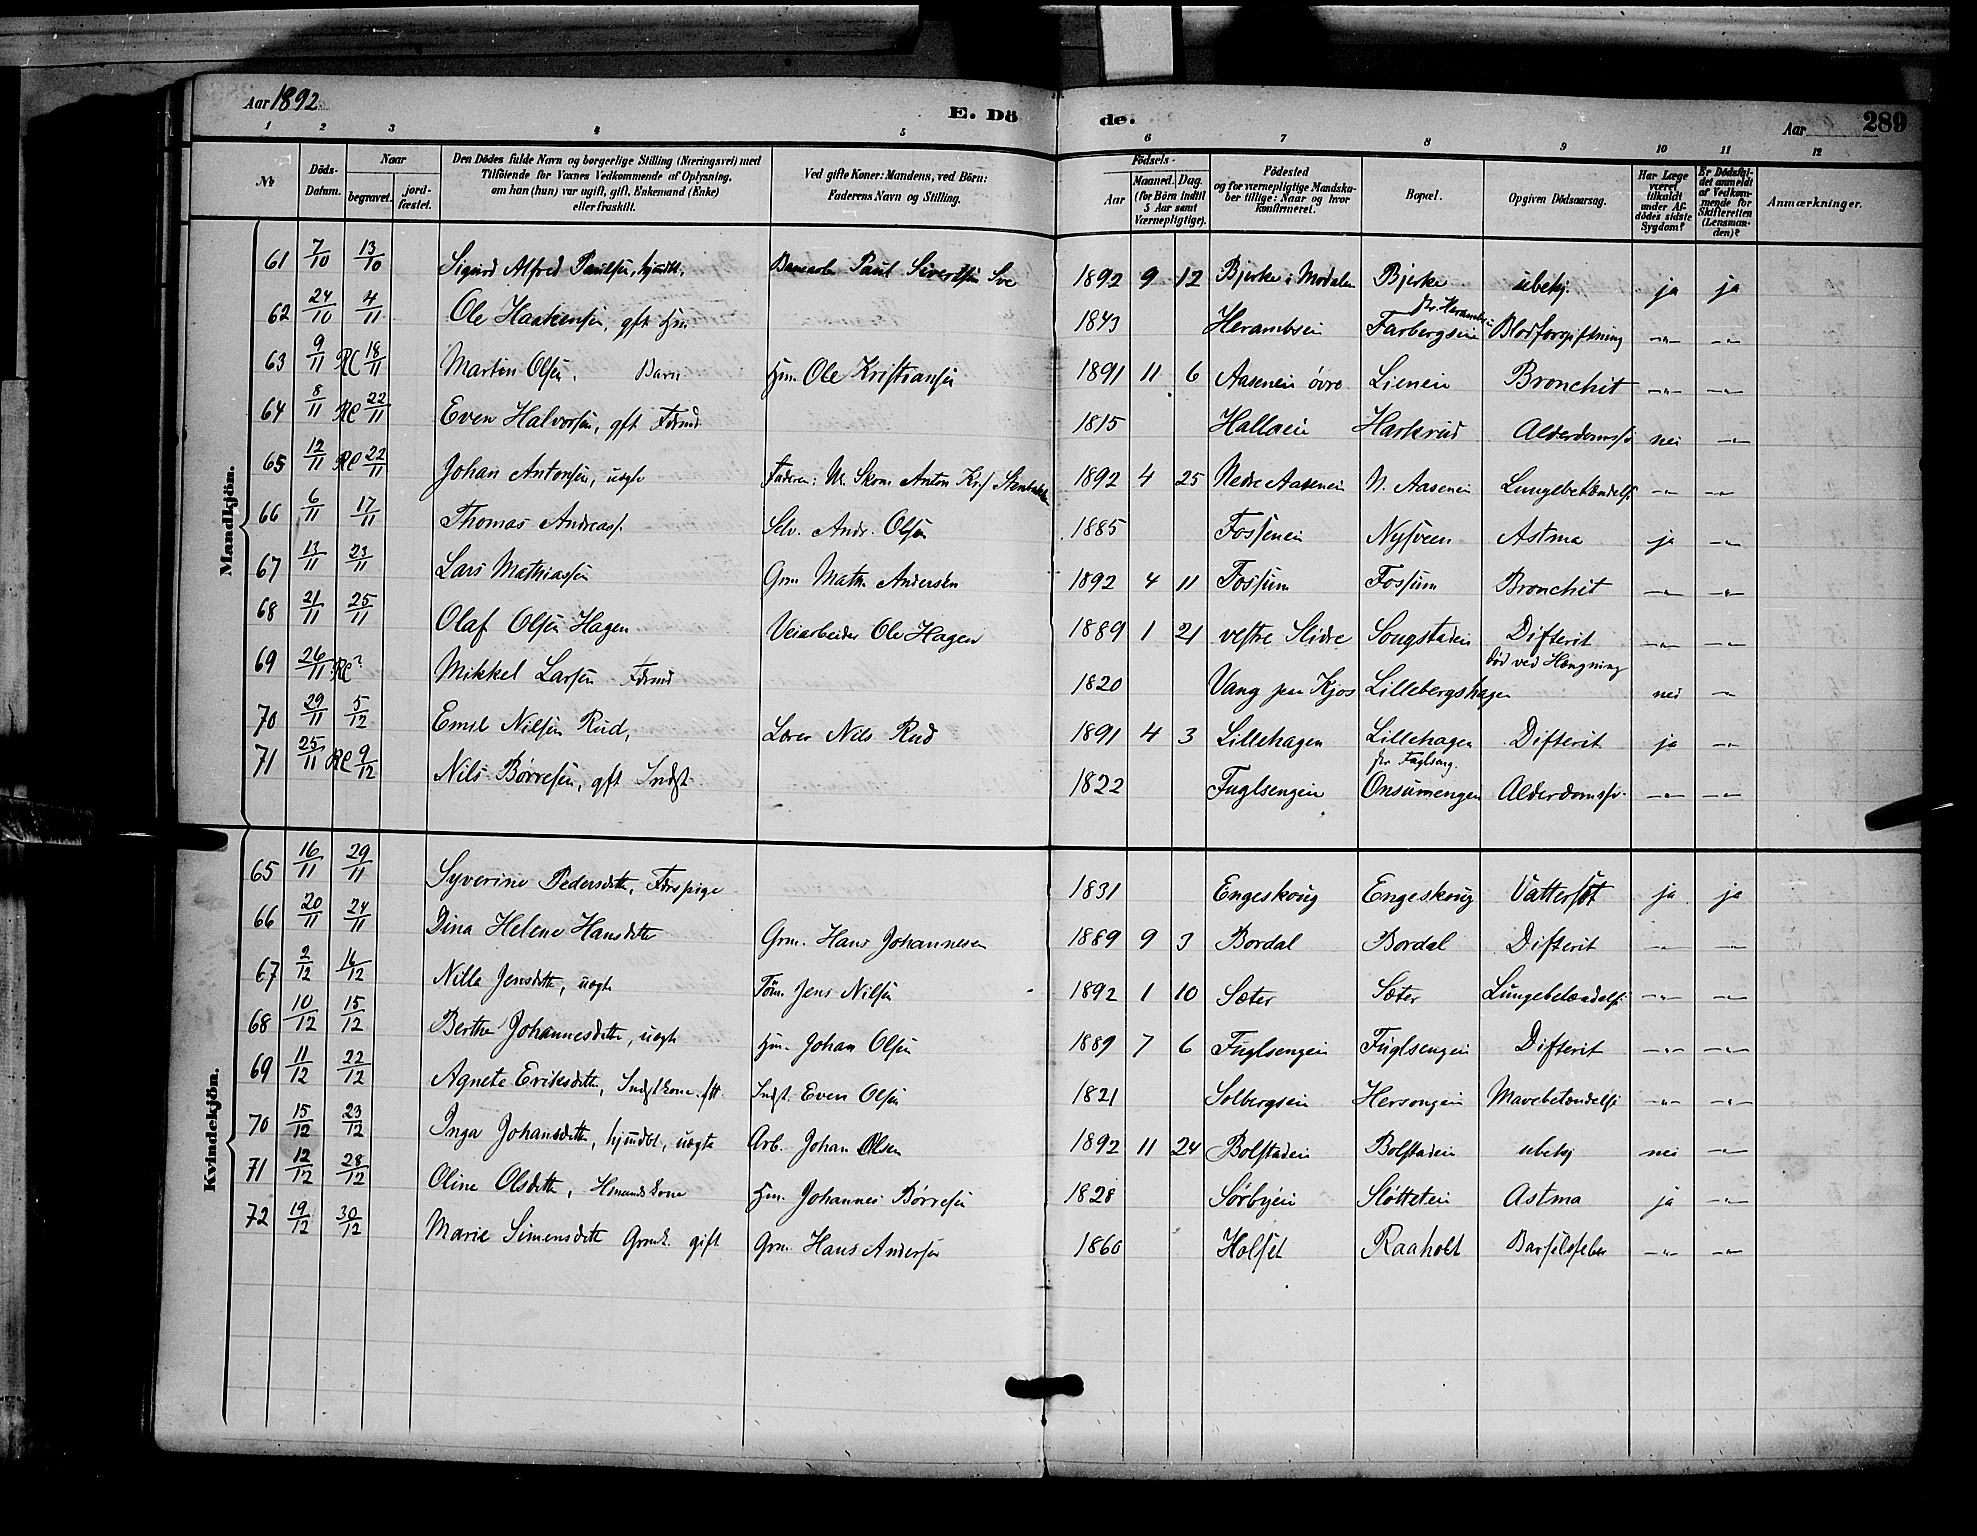 Aar 1892
E. Dö
de.
Aar
289
1 2 3 4 5 6 7 8 9 10 11 12
№
Döds-Datum.
Naar
begravet.
jord-fæstet.
Den Dödes fulde Navn og borgerlige Stilling (Næringsvei) med
Tilföiende for Voxnes Vedkommende af Oplysning,
om han (hun) var ugift, gift, Enkemand (Enke)
eller fraskilt.
Ved gifte Koner: Mandens, ved Börn:
Faderens Navn og Stilling.
Födsels-
Aar
Maaned. Dag.
(for Börn indtil
5 Aar samt
Værnepligtige).
Födested
og for værnepligtige Mandska-
ber tillige: Naar og hvor
konfirmeret.
Bopæl.
Opgiven Dödsaarsag.
Har Læge
været
tilkaldt
under Af-
dödes sidste
Sygdom?
Er Dödsfal-
det anmeldt
af Vedkom-
mende for
Skifteretten
(Lensman-
den)?
Anmærkninger.
Mandkjön.
61 7/10 13/10 Sigurd Alfred Paulsen, hjmdt. Paul Sivertsen 1892 9 12 Bjerke i Modalen Bjerke ubekj. ja ja
62 24/10 4/11 Ole Haakensen, gft Hm 1843 Herambseie Farbergseie Blodforgiftning -"- -"-
63 9/11 Rl 18/11 Martin Olsen. Barn Hm. Ole Kristiansen 1891 11 6 Aaseneie övre Lieneie Bronchit -"- -"-
64 8/11 Rl 22/11 Even Halvorsen, gft Fdrmd 1815 Halloeie Harkrud Alderdomssv nei -"-
65 12/11 Rl 22/11 Johan Antonsen, uægte Faderen: Anton 1892 4 25 Nedre Aaseneie N. Aaseneie Lungebetændelse -"- -"-
66 6/11 17/11 Thomas Andreass. Selv. Andr. Olsen 1885 Fosseneie Nysveen Astma ja -"-
67 13/11 23/11 Lars Mathiassen Grm Math. Andersen 1892 4 11 Fossum Fossum Bronchit -"- -"-
68 21/11 25/11 Olaf Olsen Hagen Veiarbeider Ole Hagen 1889 1 21 vestre Slidre Songstadeie Difterit -"- -"-
69 26/11 Rl ? Mikkel Larsen Fdrmd 1820 Vang paa Lillebergshagen död ved Hængning nei -"-
70 29/11 5/12 Emil Nilsen Rud, Lærer Nils Rud 1891 4 3 Lillehagen Lillehagen Difterit ja -"-
71 25/11 Rl 9/12 Nils Börresen, gft Indst 1822 Fuglsengeie Onsumengen Alderdomssv. -"- -"-
Kvindekjön.
65 16/11 29/11 Syverine Pedersdtt, Fdrspige 1831 Engeskoug Engeskoug Vattersot ja ja
66 20/11 24/11 Dina Helene Hansdtt Grm. Hans Johannesen 1889 9 3 Bordal Bordal Difterit -"- -"-
67 2/12 14/12 Nilla Jensdtt, uægte Töm. Jens Nilsen 1892 1 10 Sæter Sæter Lungebetændelse -"- -"-
68 10/12 15/12 Berthe Johannesdtt, uægt Hm. Johan Olsen 1889 7 6 Fuglsengeie Fuglsengeie Difterit -"- -"-
69 11/12 22/12 Agnete Eriksdtt, Indstkone. ftt. Indst. Even Olsen 1821 Solbergseie Hersongeie Mavebetændelse -"- -"-
70 15/12 23/12 Inga Johansdtt, hjmdöt, uægte Arb. Johan Olsen 1892 11 24 Bolstadeie Bolstadeie ubekj nei -"-
71 12/12 28/12 Oline Olsdtt, Hmandskone Hm. Johannes Börresen 1828 Sörbyeie Slötteteie Astma ja -"-
72 19/12 30/12 Marie Simensdtt Grmk. gift Grm. Hans Andersen 1860 Holset Raaholt Barselsfeber -"- -"-